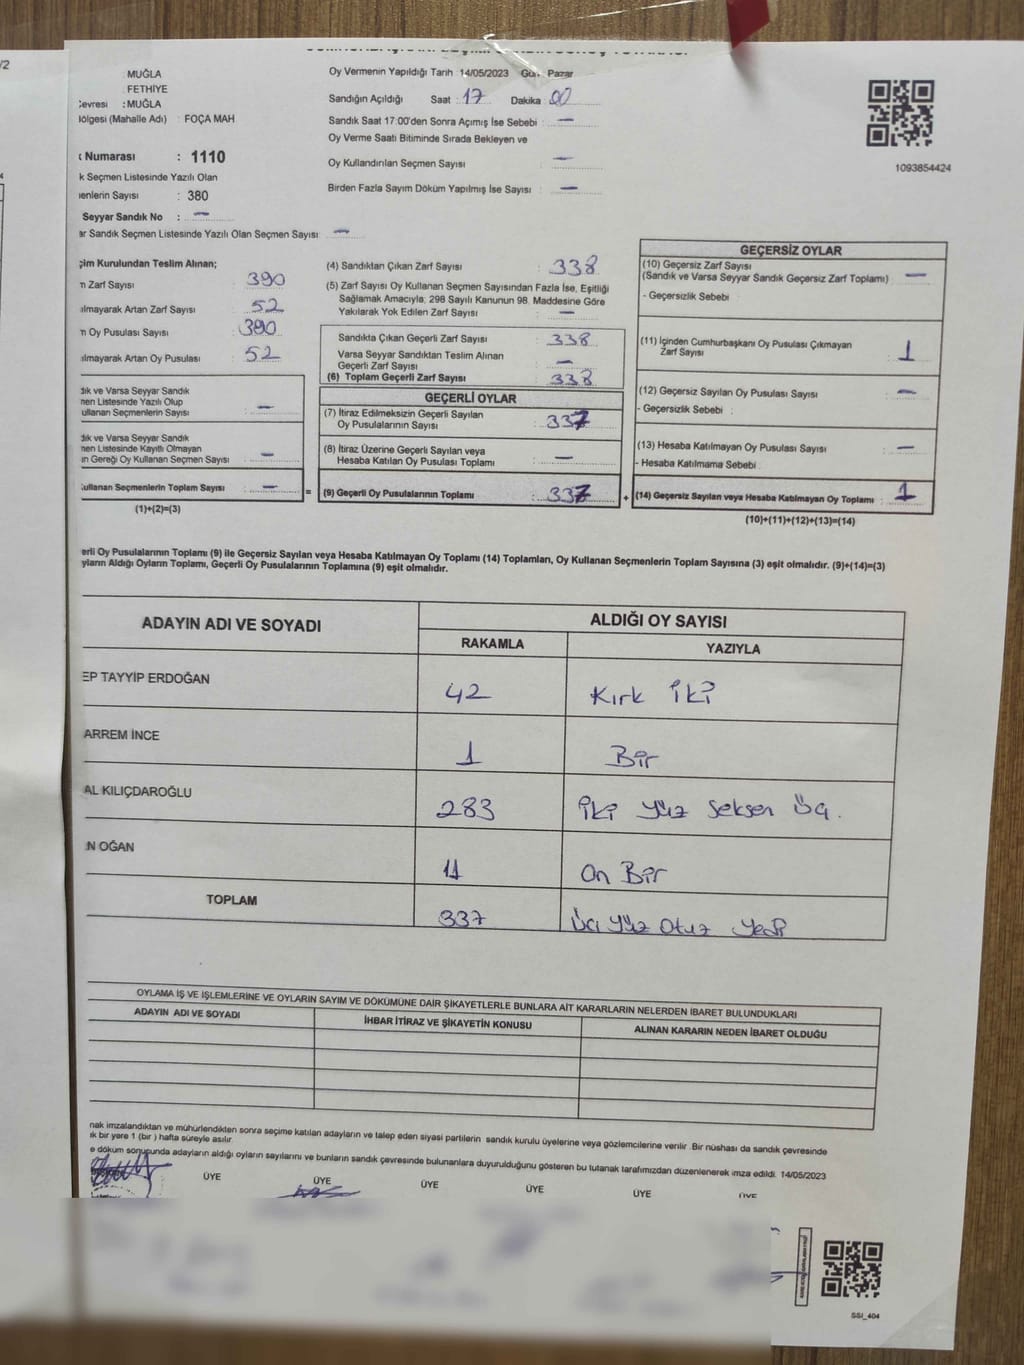 /2
MUĞLA
FETHİYE
Çevresi : MUĞLA
Bölgesi (Mahalle Adı) : FOÇA MAH
Numarası : 1110
Seçmen Listesinde Yazılı Olan
Sayısı : 380
Seyyar Sandık No : —
Sandık Seçmen Listesinde Yazılı Olan Seçmen Sayısı: —
Oy Vermenin Yapıldığı Tarih : 14/05/2023 Gün : Pazar
Sandığın Açıldığı Saat : 17 Dakika : 00
Sandık Saat 17:00'den Sonra Açımış İse Sebebi : —
Oy Verme Saati Bitiminde Sırada Bekleyen ve
Oy Kullandırılan Seçmen Sayısı : —
Birden Fazla Sayım Döküm Yapılmış İse Sayısı : —
1093854424
Kurulundan Teslim Alınan;
Zarf Sayısı : 390
Artan Zarf Sayısı : 52
Oy Pusulası Sayısı : 390
Artan Oy Pusulası : 52
ve Varsa Seyyar Sandık
Listesinde Yazılı Olup
Seçmenlerin Sayısı : —
ve Varsa Seyyar Sandık
Listesinde Kayıtlı Olmayan
Gereği Oy Kullanan Seçmen Sayısı : —
Kullanan Seçmenlerin Toplam Sayısı : — =
(1)+(2)=(3)
(4) Sandıktan Çıkan Zarf Sayısı : 338
(5) Zarf Sayısı Oy Kullanan Seçmen Sayısından Fazla İse, Eşitliği
Sağlamak Amacıyla; 298 Sayılı Kanunun 98. Maddesine Göre
Yakılarak Yok Edilen Zarf Sayısı : —
Sandıkta Çıkan Geçerli Zarf Sayısı : 338
Varsa Seyyar Sandıktan Teslim Alınan
Geçerli Zarf Sayısı : —
(6) Toplam Geçerli Zarf Sayısı : 338
GEÇERLİ OYLAR
(7) İtiraz Edilmeksizin Geçerli Sayılan
Oy Pusulalarının Sayısı : 337
(8) İtiraz Üzerine Geçerli Sayılan veya
Hesaba Katılan Oy Pusulası Toplamı : —
(9) Geçerli Oy Pusulalarının Toplamı : 337 +
GEÇERSİZ OYLAR
(10) Geçersiz Zarf Sayısı
(Sandık ve Varsa Seyyar Sandık Geçersiz Zarf Toplamı) : —
- Geçersizlik Sebebi :
(11) İçinden Cumhurbaşkanı Oy Pusulası Çıkmayan
Zarf Sayısı : 1
(12) Geçersiz Sayılan Oy Pusulası Sayısı : —
- Geçersizlik Sebebi :
(13) Hesaba Katılmayan Oy Pusulası Sayısı : —
- Hesaba Katılmama Sebebi :
(14) Geçersiz Sayılan veya Hesaba Katılmayan Oy Toplamı : 1
(10)+(11)+(12)+(13)=(14)
Oy Pusulalarının Toplamı (9) ile Geçersiz Sayılan veya Hesaba Katılmayan Oy Toplamı (14) Toplamları, Oy Kullanan Seçmenlerin Toplam Sayısına (3) eşit olmalıdır. (9)+(14)=(3)
Aldığı Oyların Toplamı, Geçerli Oy Pusulalarının Toplamına (9) eşit olmalıdır.
ADAYIN ADI VE SOYADI
ALDIĞI OY SAYISI
RAKAMLA YAZIYLA
EP TAYYİP ERDOĞAN 42 Kırk iki
ARREM İNCE 1 Bir
AL KILIÇDAROĞLU 283 iki yüz seksen üç.
N OĞAN 11 On Bir
TOPLAM 337 Üç yüz otuz yedi
OYLAMA İŞ VE İŞLEMLERİNE VE OYLARIN SAYIM VE DÖKÜMÜNE DAİR ŞİKAYETLERLE BUNLARA AİT KARARLARIN NELERDEN İBARET BULUNDUKLARI
ADAYIN ADI VE SOYADI İHBAR İTİRAZ VE ŞİKAYETİN KONUSU ALINAN KARARIN NEDEN İBARET OLDUĞU
imzalandıktan ve mühürlendikten sonra seçime katılan adayların ve talep eden siyasi partilerin sandık kurulu üyelerine veya gözlemcilerine verilir. Bir nüshası da sandık çevresinde
bir yere 1 (bir ) hafta süreyle asılır.
döküm sonucunda adayların aldığı oyların sayılarını ve bunların sandık çevresinde bulunanlara duyurulduğunu gösteren bu tutanak tarafımızdan düzenlenerek imza edildi. 14/05/2023
ÜYE ÜYE ÜYE ÜYE ÜYE ÜYE
SSI_404